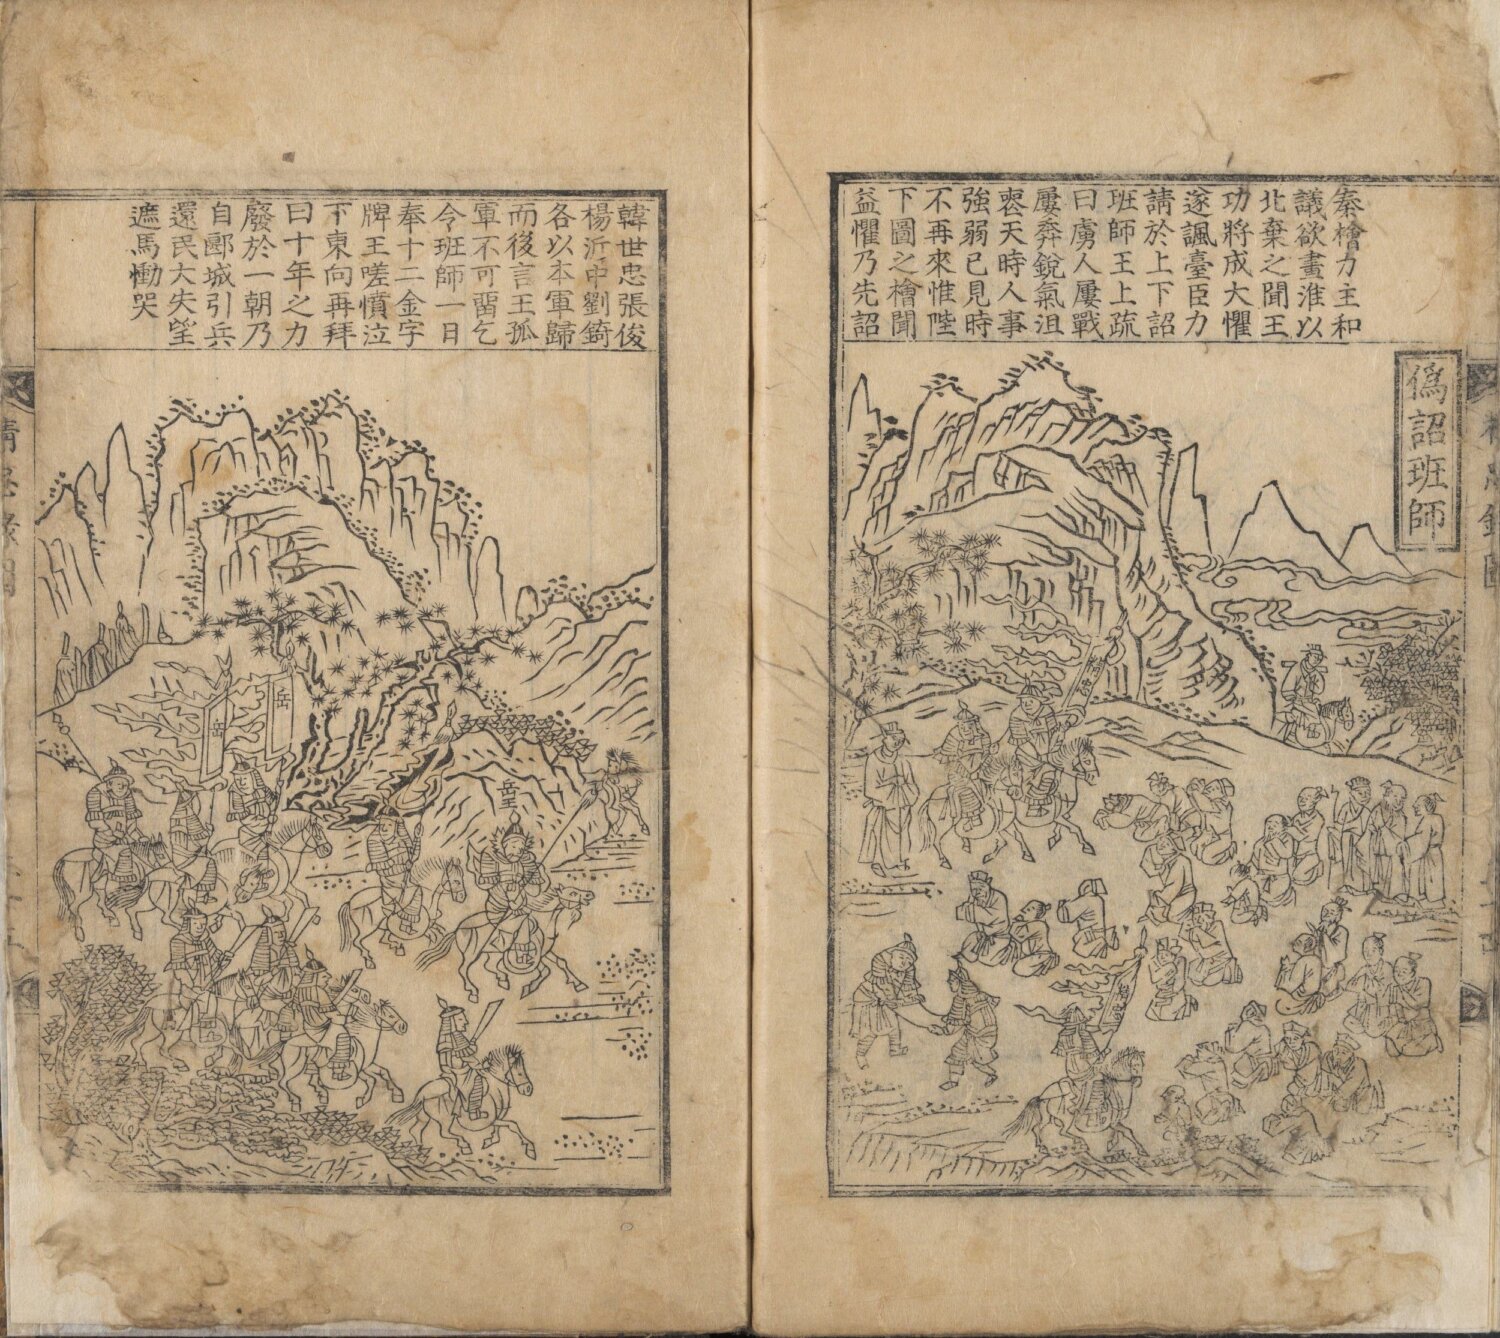 僞詔班師
秦檜力主和
議欲畫淮以
北棄之聞王
功將成大懼
遂諷臺臣力
請於上下詔
班師王上疏
曰虜人屢戰
屢奔銳氣沮
喪天時人事
強弱已見時
不再來惟陛
下圖之檜聞
益懼乃先詔
韓世忠張俊
楊沂中劉錡
各以本軍歸
而後言王孤
軍不可留乞
令班師一日
奉十二金字
牌王嗟憤泣
下東向再拜
曰十年之力
廢於一朝乃
自郾城引兵
還民大失望
遮馬慟哭
岳王
岳
岳
精忠錄圖